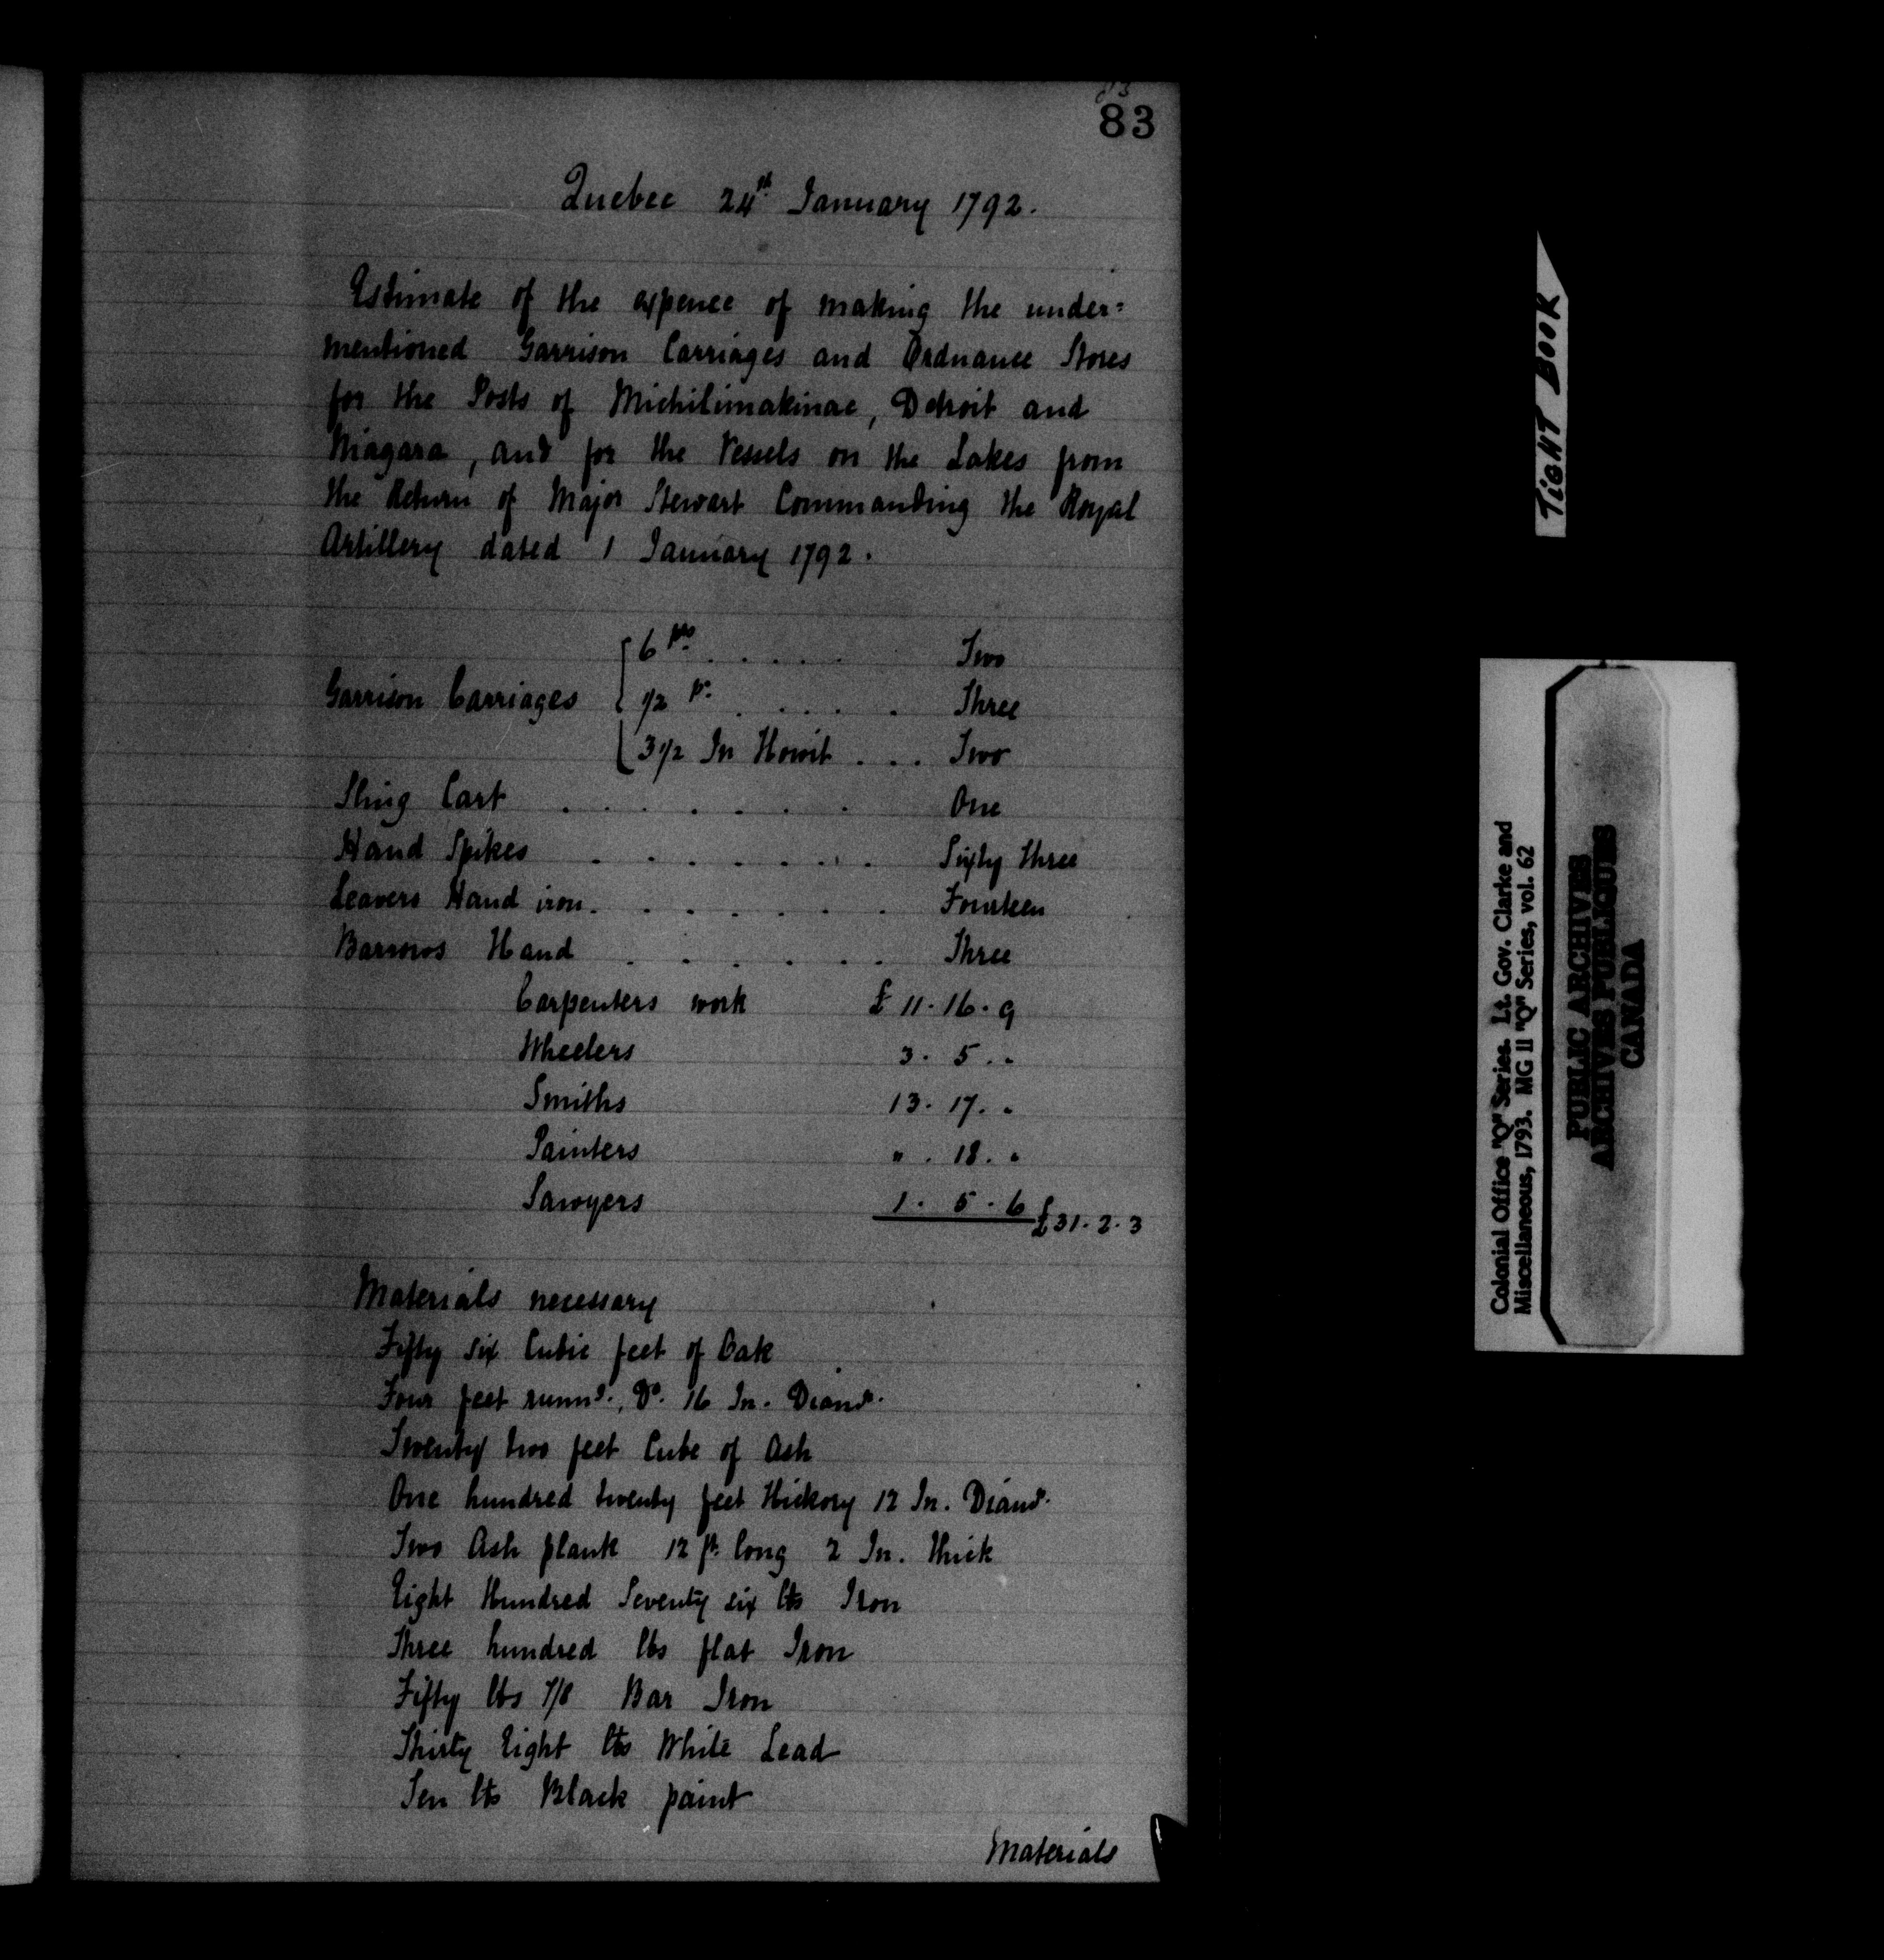 83
Quebec 24th January 1792.
Estimate of the expence of making the under=
mentioned Garrison Carriages and Ordnance Stores
for the Posts of Michilimakinac, Detroit and
Niagara, and for the Vessels on the Lakes from
the Return of Major Stewart Commanding the Royal
Artillery dated 1 January 1792.
6 prs. . . . . Two
Garrison Carriages 1/2 pr. . . . . Three
3 1/2 In Howit . . . Two
Sling Cart . . . . . . . One
Hand Spikes . . . . . . . Sixty three
Leavers Hand iron. . . . . . . Fourteen
Barrows Hand . . . . . . Three
Carpenters work £ 11. 16. 9
Wheelers 3. 5. "
Smiths 13. 17. "
Painters " . 18. "
Sawyers 1. 5. 6 £31. 2. 3
Materials necessary
Fifty six Cubic feet of Oak
Four feet runng., Do. 16 In. Diamr.
Twenty two feet Cube of Ash
One hundred twenty feet Hickory 12 In. Diamr.
Two Ash plank 12 ft. long 2 In. thick
Eight Hundred Seventy six lbs Iron
Three hundred lbs flat Iron
Fifty lbs 7/8 Bar Iron
Thirty Eight lbs White Lead
Ten lbs Black paint
Materials
TIGHT BOOK
Colonial Office "Q" Series. Lt. Gov. Clarke and
Miscellaneous, 1793. MG 11 "Q" Series, vol. 62
PUBLIC ARCHIVES
ARCHIVES PUBLIQUES
CANADA